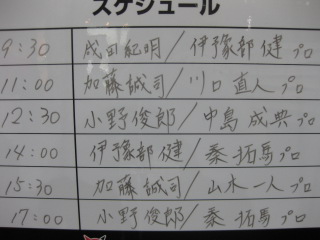 スケジュール
9:30 成田紀明/伊豫部健プロ
11:00 加藤誠司/川口直人プロ
12:30 小野俊郎/中島成典プロ
14:00 伊豫部健/泰拓馬プロ
15:30 加藤誠司/山木一人プロ
17:00 小野俊郎/泰拓馬プロ